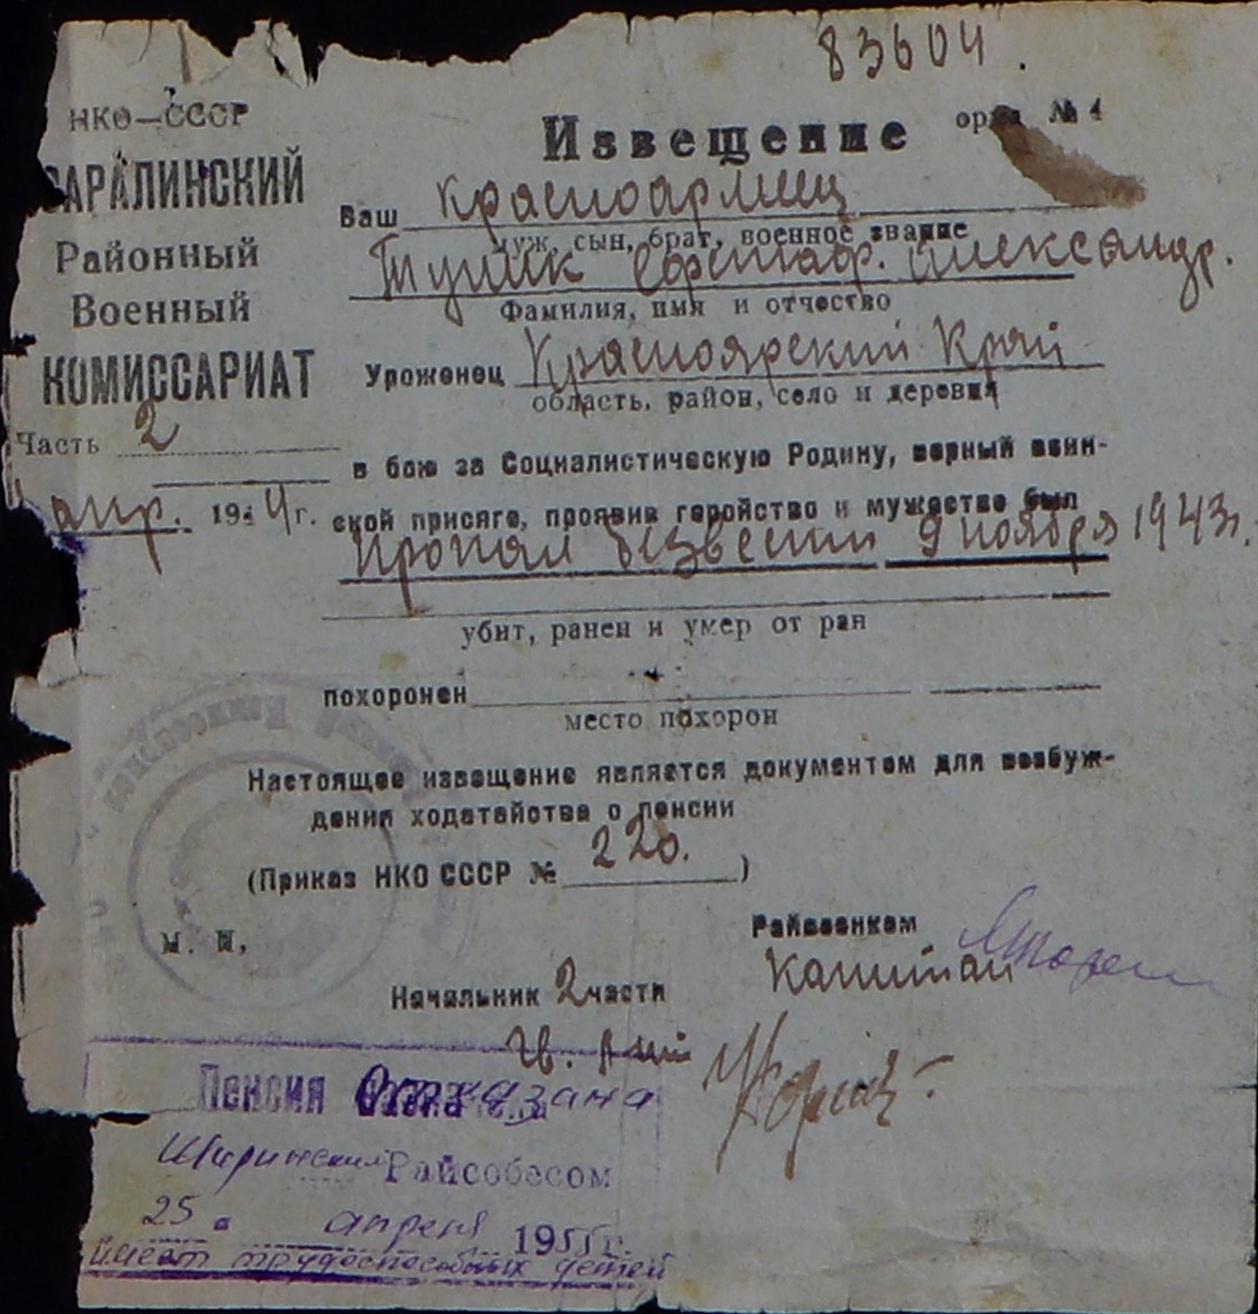 83604.
НКО—СССР
САРАЛИНСКИЙ
Районный
Военный
КОМИССАРИАТ
Часть 2
апр. 1944 г.
№ 4
Извещение
Ваш красноармеец
муж, сын, брат, военное звание
Ефстаф. Александр.
Фамилия, имя и отчество
Уроженец Красноярский Край
область, район, село и деревня
в бою за Социалистическую Родину, верный воин-
ской присяге, проявив геройство и мужество был
пропал безвести 9 ноября 1943г.
убит, ранен и умер от ран
похоронен
место похорон
Настоящее извещение является документом для возбуж-
дения ходатайства о пенсии
(Приказ НКО СССР № 220. )
М. П.
Райвоенком
Капитан
Начальник 2 части
гв.
Пенсия Отказана
Ширинским Райсобесом
25 апреля 1955г.
имеет трудоспособных детей